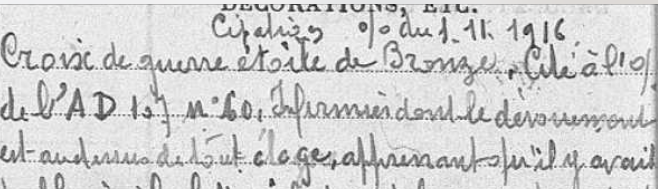 DECORATIONS, ETC.
Citations o/o du 1.11.1916.
Croix de guerre étoile de Bronze. Cité à l'o/
de l'AD 157 n° 60, Infirmier dont le dévouement
est au dessus de tout éloge, apprenant qu'il y avait